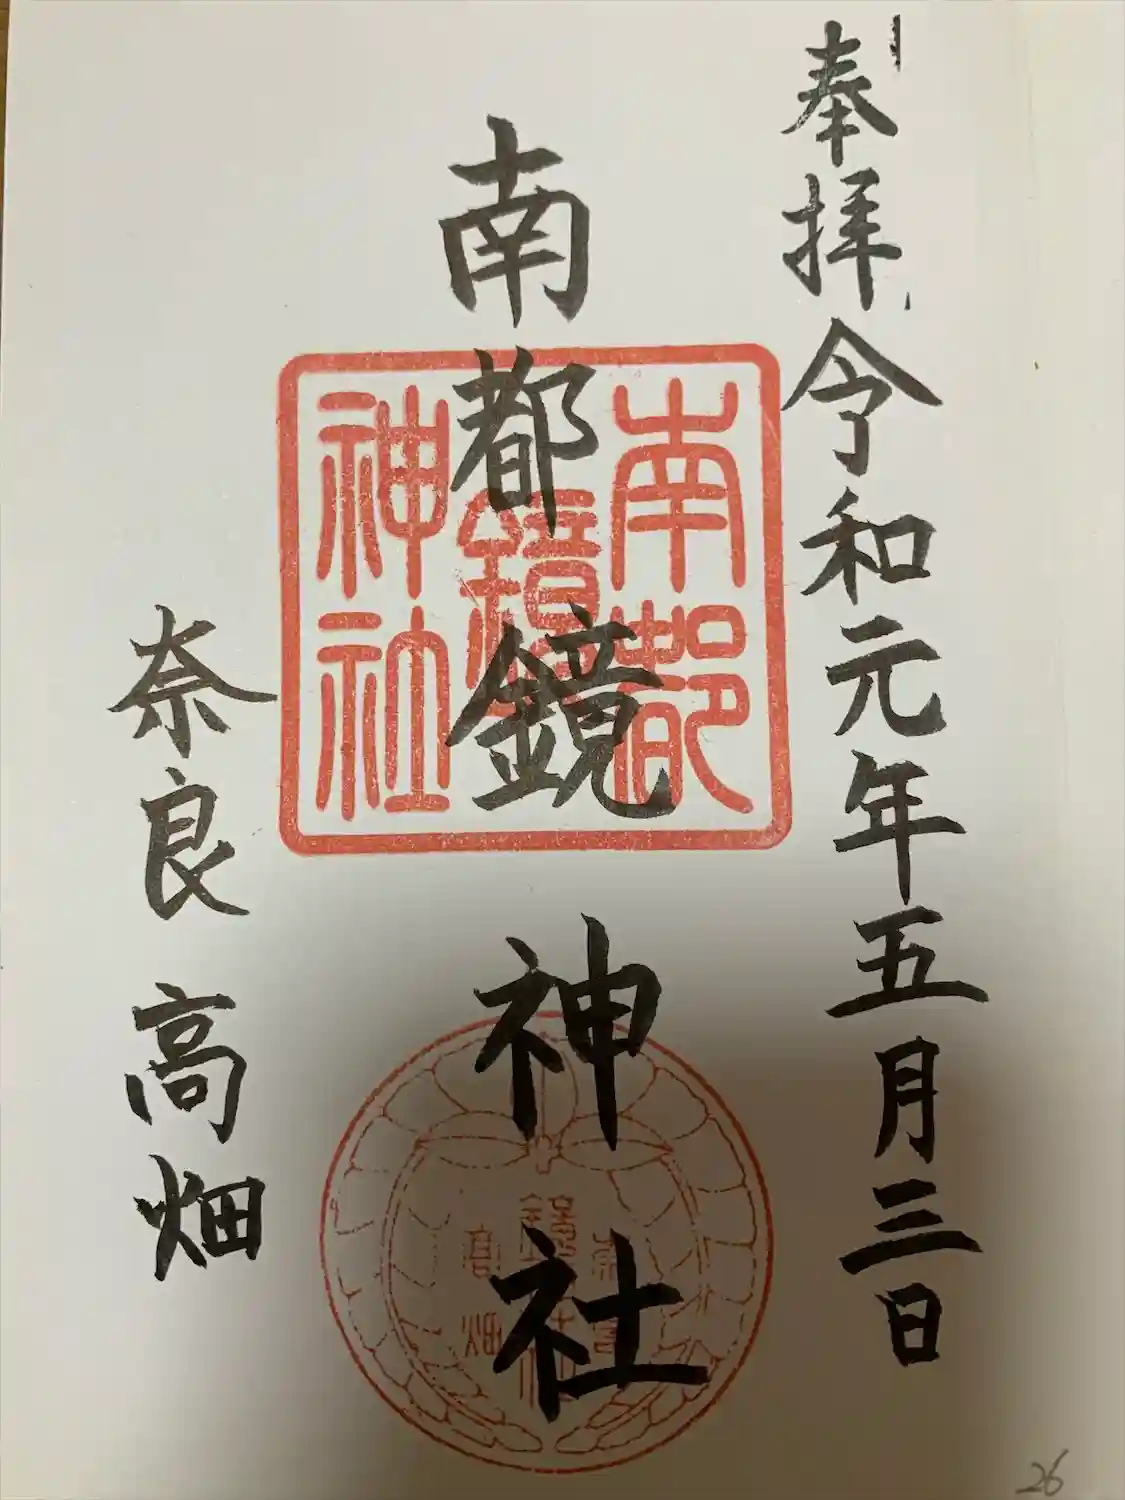 奉拝 令和元年五月三日
南都鏡神社
南都
鏡
神社
奈良 高畑
26